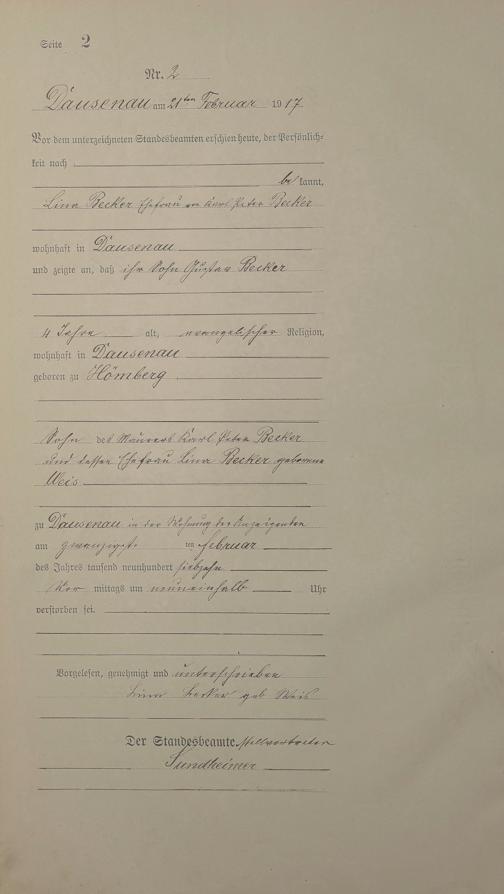 Seite 2
Nr. 2
Dausenau am 21ten Februar 1917
Vor dem unterzeichneten Standesbeamten erschien heute, der Persönlich-
keit nach
be kannt,
Lina Becker Ehefrau von Karl Peter Becker
wohnhaft in Dausenau
und zeigte an, daß ihr Sohn Gustav Becker
4 Jahre alt, evangelischer Religion,
wohnhaft in Dausenau
geboren zu Hömberg
Sohn des Maurers Karl Peter Becker
und dessen Ehefrau Lina Becker geborene
Weis
zu Dausenau in der Wohnung der Anzeigenden
am zwanzigste ten Februar
des Jahres tausend neunhundert siebzehn
Vor mittags um neuneinhalb Uhr
verstorben sei.
Vorgelesen, genehmigt und unterschrieben
Lina Becker geb Weis
Der Standesbeamte. Stellvertreter
Sundheimer